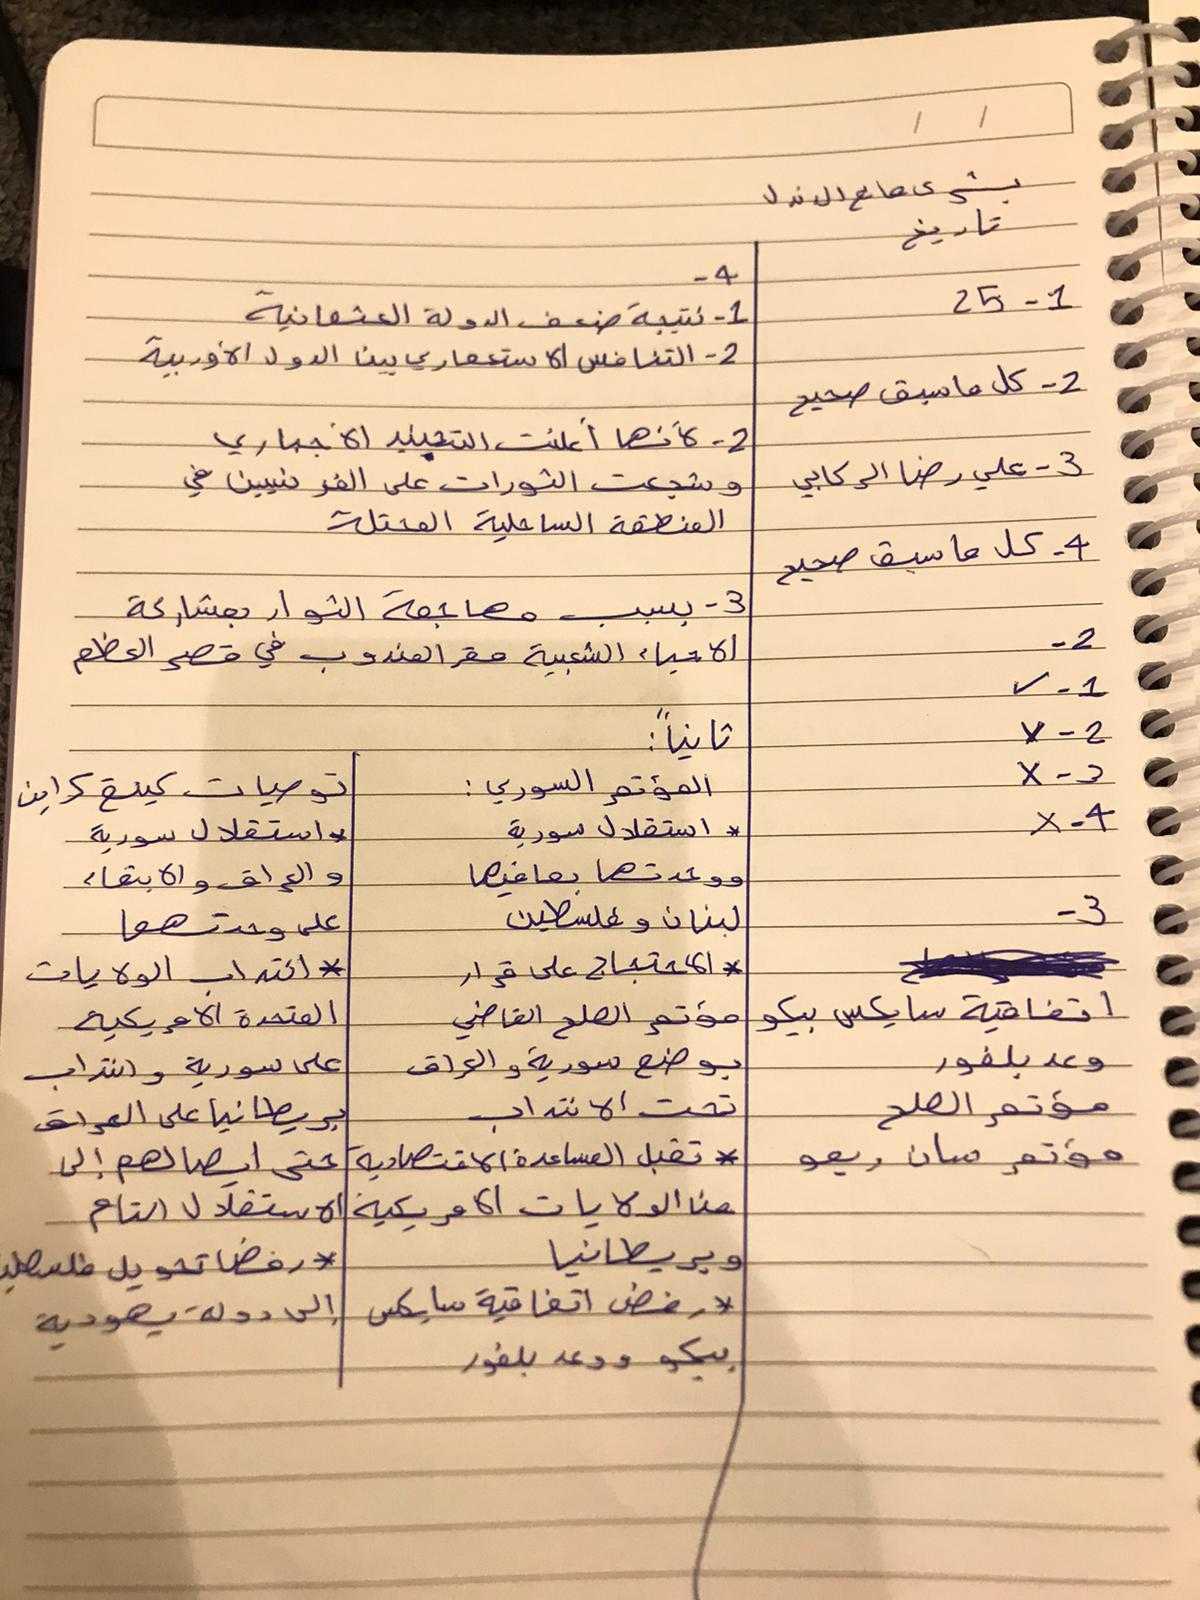 بشرى صالح
تاريخ
1- 25
2- كل ماسبق صحيح
3- علي رضا الركابي
4- كل ماسبق صحيح
2-
1- ✓
2- X
3- X
4- X
3-
اتفاقية سايكس بيكو
وعد بلفور
مؤتمر الصلح
مؤتمر سان ريمو
4-
1- نتيجة ضعف الدولة العثمانية
2- التنافس الاستعماري بين الدول الأوربية
2- لأنها أعلنت التجنيد الاجباري
وشجعت الثورات على الفرنسيين في
المنطقة الساحلية المحتلة
3- بسبب مهاجمة الثوار بمشاركة
الاحياء الشعبية مقر المندوب في قصر العظم
ثانياً:
المؤتمر السوري:
* استقلال سورية
ووحدتها بمافيها
لبنان وفلسطين
* الاحتجاج على قرار
مؤتمر الصلح القاضي
بوضع سورية والعراق
تحت الانتداب
* تقبل المساعدة الاقتصادية
من الولايات الامريكية
وبريطانيا
* رفض اتفاقية سايكس
بيكو ووعد بلفور
توصيات كينغ كراين
* استقلال سورية
والعراق والابقاء
على وحدتهما
* انتداب الولايات
المتحدة الامريكية
على سورية وانتداب
بريطانيا على العراق
حتى ايصالهم إلى
الاستقلال التام
* رفضا تحويل فلسطين
إلى دولة يهودية